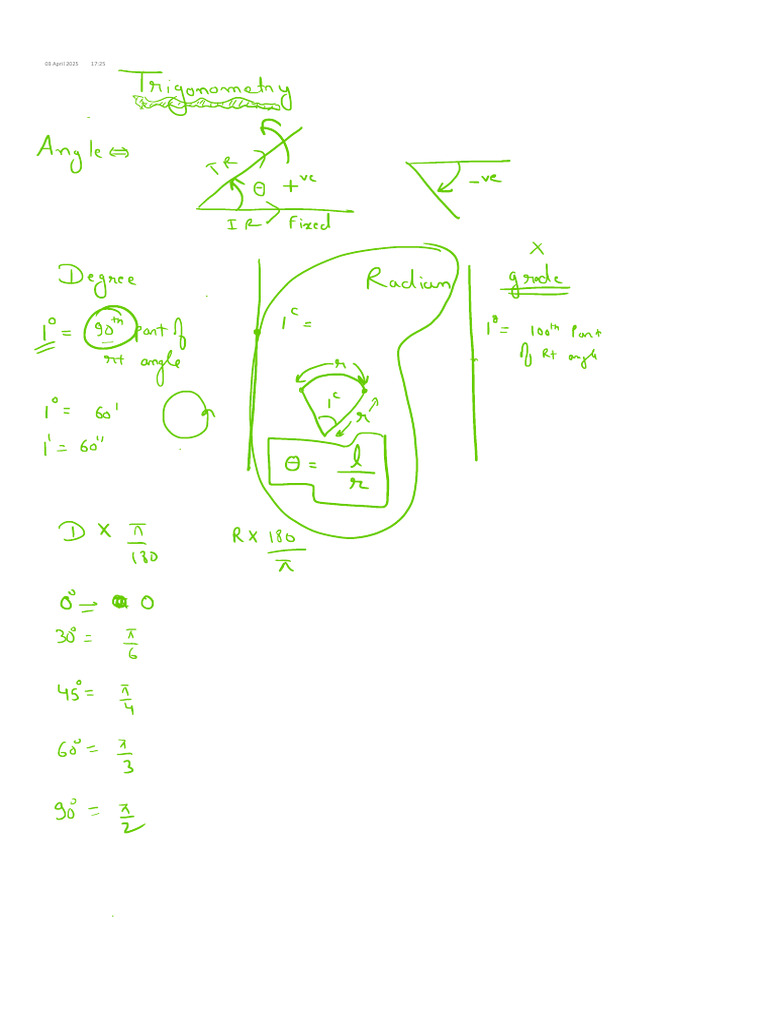 03 April 2025 17:25
Trigonometry
Angle ⇔
TR
θ +ve
IR Fixed
-ve
Degree
1° = 90th part of
rt angle
1° = 60'
1' = 60"
Radian
1ᶜ =
r
1ᶜ
r
θ = l/r
X
grade
1ᵍ = 100th Part
of Rt angle
D X π/180
R X 180/π
0° → 0
30° = π/6
45° = π/4
60° = π/3
90° = π/2